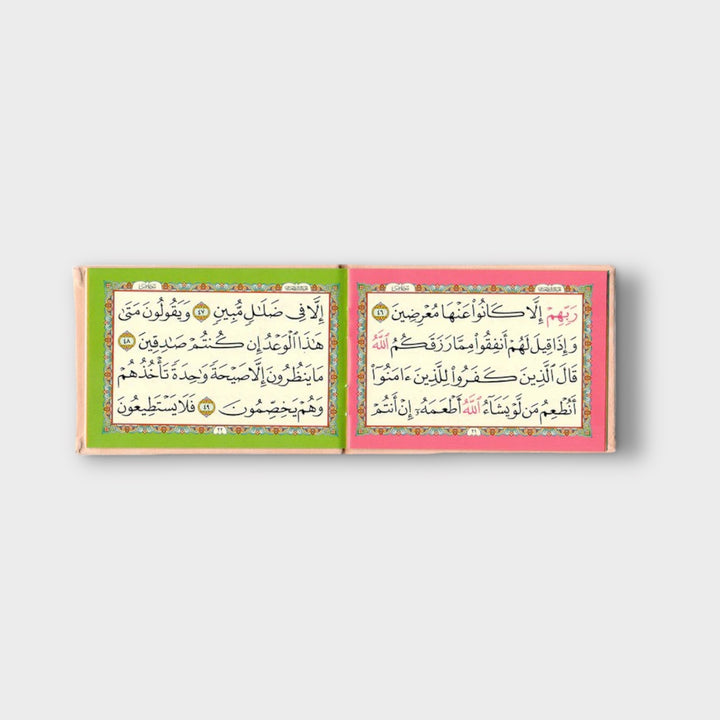 رَبِّهِمْ إِلَّا كَانُوا۟ عَنْهَا مُعْرِضِينَ ٤٦
وَإِذَا قِيلَ لَهُمْ أَنفِقُوا۟ مِمَّا رَزَقَكُمُ ٱللَّهُ
قَالَ ٱلَّذِينَ كَفَرُوا۟ لِلَّذِينَ ءَامَنُوٓا۟
أَنُطْعِمُ مَن لَّوْ يَشَآءُ ٱللَّهُ أَطْعَمَهُۥٓ إِنْ أَنتُمْ
إِلَّا فِى ضَلَٰلٍ مُّبِينٍ ٤٧ وَيَقُولُونَ مَتَىٰ
هَٰذَا ٱلْوَعْدُ إِن كُنتُمْ صَٰدِقِينَ ٤٨
مَا يَنظُرُونَ إِلَّا صَيْحَةً وَٰحِدَةً تَأْخُذُهُمْ
وَهُمْ يَخِصِّمُونَ ٤٩ فَلَا يَسْتَطِيعُونَ